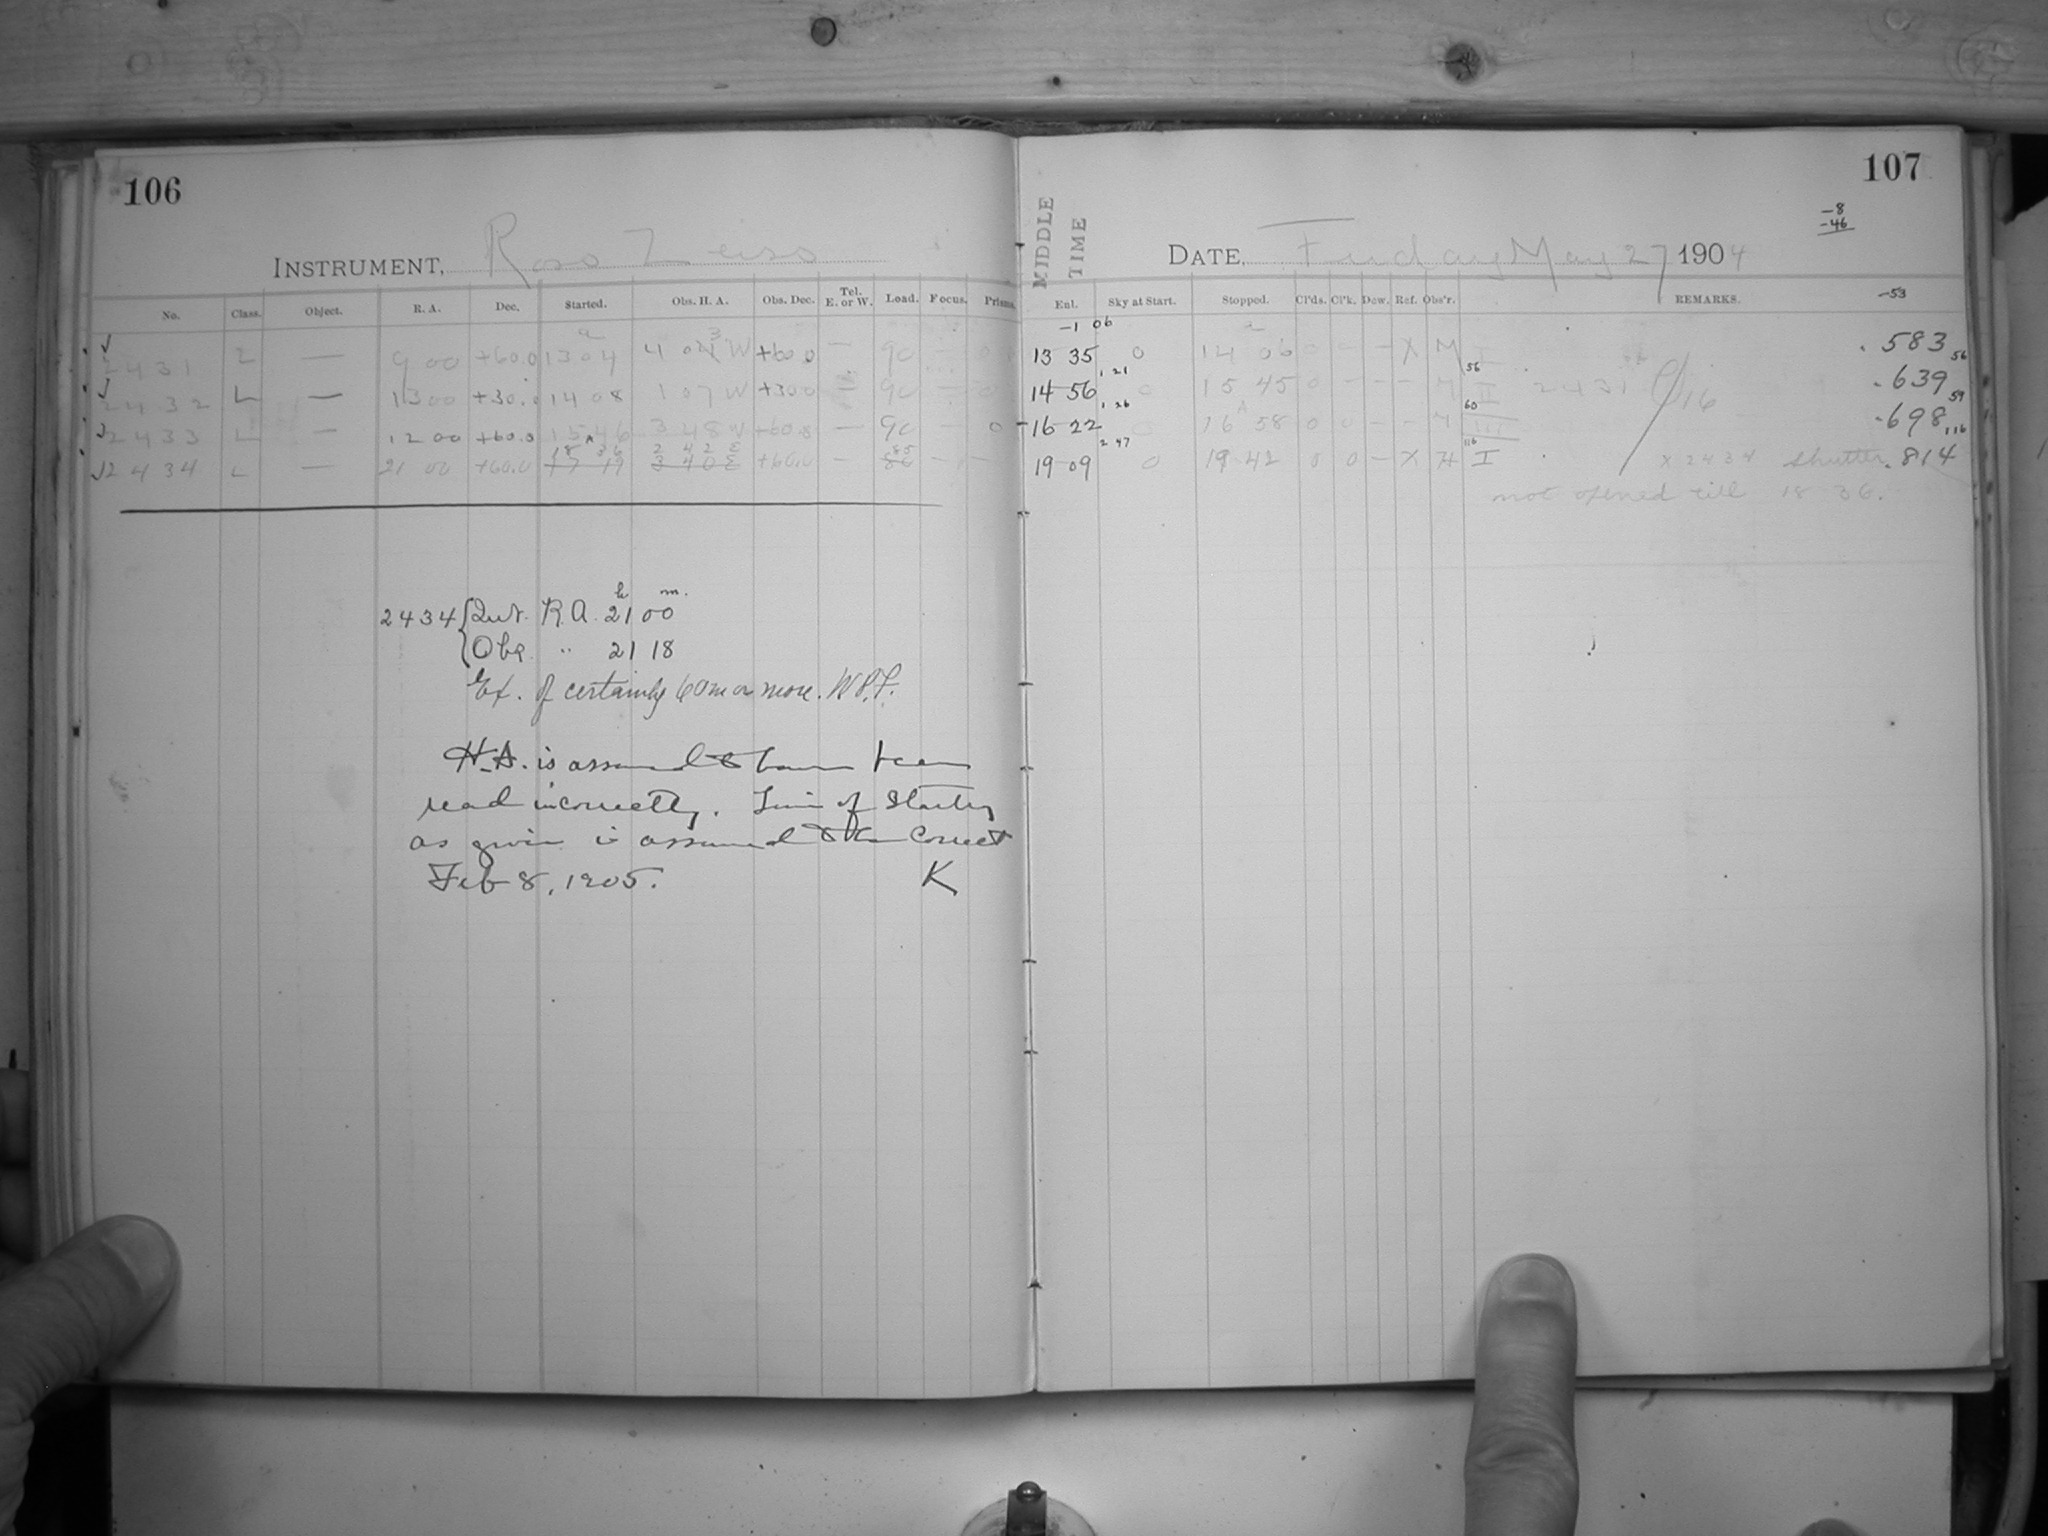 106
INSTRUMENT, Ross Zeiss
No. Class. Object. R. A. Dec. Started. Obs. H. A. Obs. Dec. Tel. E. or W. Load. Focus. Prisms.
2431 L — 9 00 +60.0 13 04 W +60.0 — 90
2432 L — 13 00 +30.0 14 08 1 07 W +30.0 90
2433 L — 12 00 +60.0 15 46 3 48 W +60.0 — 90 — 0
18 36 2 42 E 85
2434 L — 21 00 +60.0 17 19 3 40 E +60.0 — 86 — — —
2434 { R.A. 21 h 00 m.
Obs. " 21 18
Ex. of certainly 60m or more. W.P.F.
H.A. is assumed to have been
read incorrectly. Time of Starting
as given is assumed to be correct
Feb 8, 1905. K
107
-8
-46
MIDDLE TIME
DATE, Friday May 27 1904
Enl. Sky at Start. Stopped. Cl'ds. Cl'k. Dew. Ref. Obs'r. REMARKS. -53
-1 06
13 35 0 14 06 0 — — X M I .583 56
1 21
14 56 0 15 45 0 — — — M 56 II 2431 .639 59
1 26
16 22 0 16 58 0 0 — — M 60 III .698 116
2 47
19 09 0 19 42 0 0 — X H 116 I X 2434 Shutter .814
not opened till 18 36.